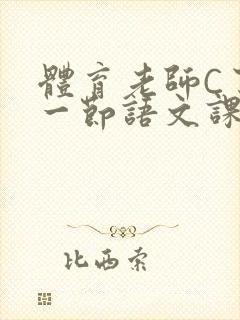 體育老師C
一節語文課
比西索